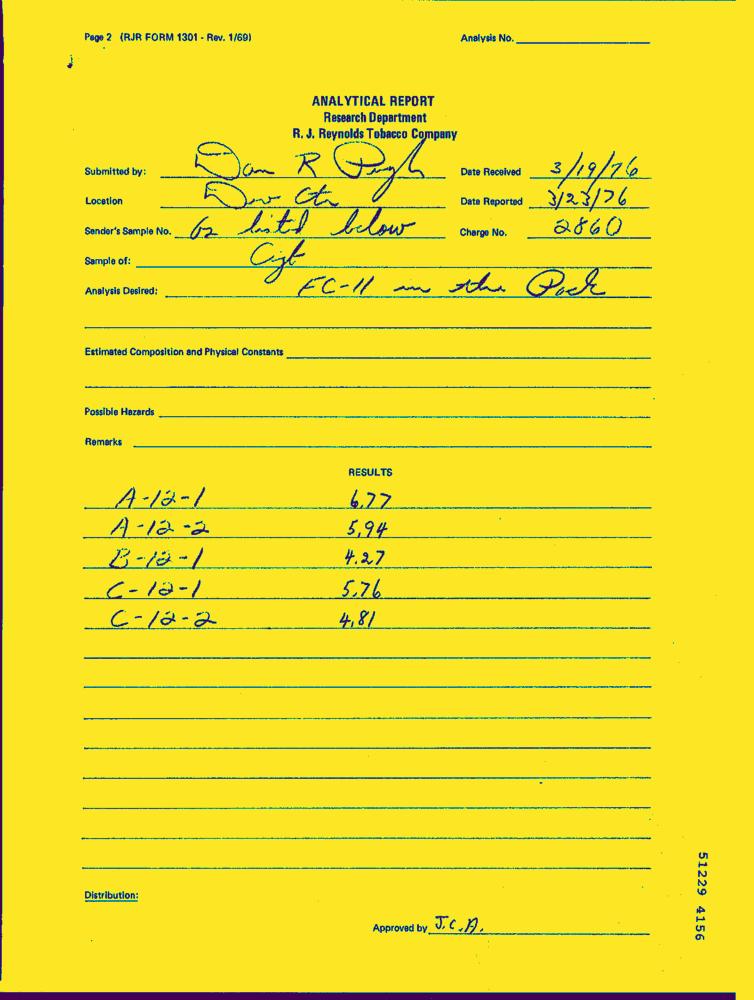 Page 2 (RJR FORM 1301 - Rev. 1/69) Analysis No.
ANALYTICAL REPORT
Research Department
R. J. Reynolds Tobacco Company
Submitted by: Dan R Pugh Date Received 3/19/76
Location Dev Ctr Date Reported 3/23/76
Sender's Sample No. listed below Charge No. 2860
Sample of: Cigt
Analysis Desired: FC-11 in the Pack
Estimated Composition and Physical Constants
Possible Hazards
Remarks
RESULTS
A-12-1 6.77
A-12-2 5.94
B-12-1 4.27
C-12-1 5.76
C-12-2 4.81
Distribution:
Approved by J.C.A.
51229 4156